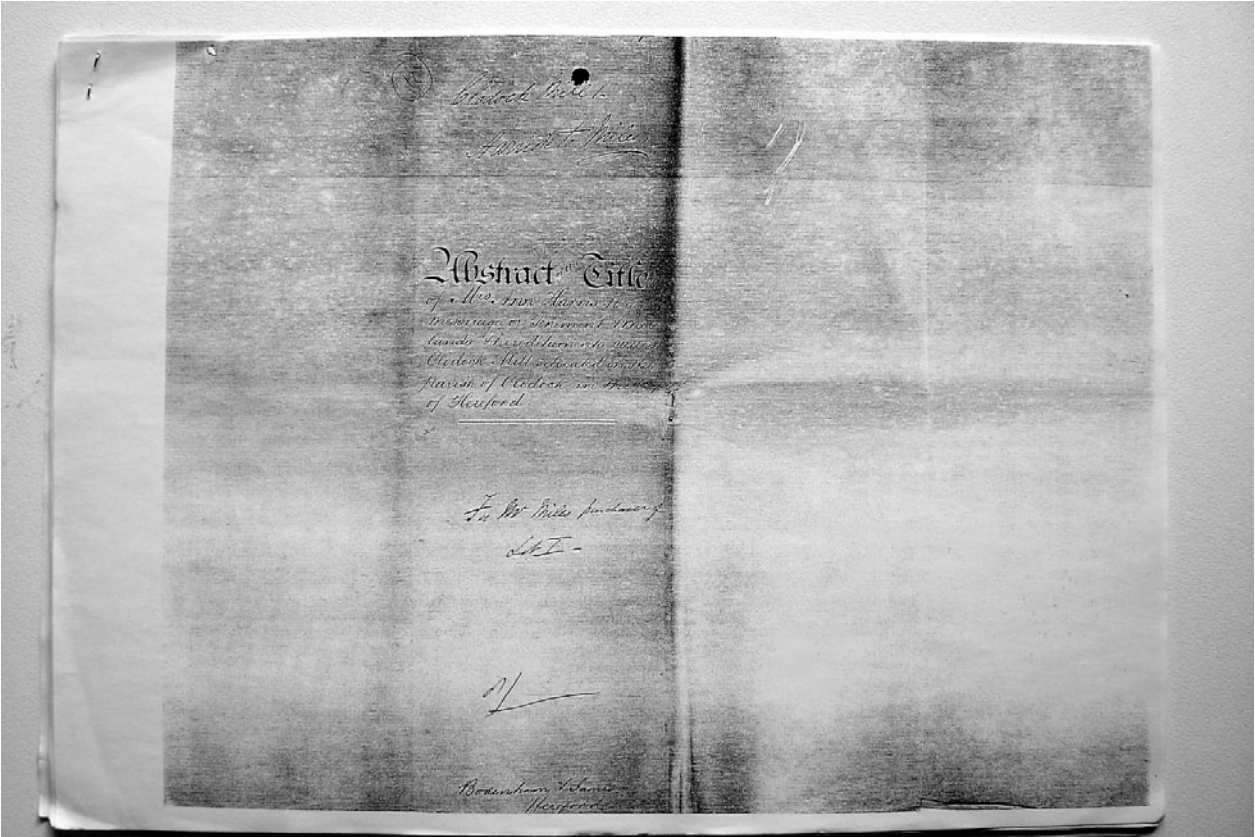 Clodock Mill
Harris to Miles
Abstract of Title
of Mrs. Ann Harris to a
messuage or Tenement &
lands & hereditaments called
Clodock Mill situated in the
parish of Clodock in the
of Hereford
For Mr Miles purchaser of
Lot 1 -
Bodenham & James
Hereford